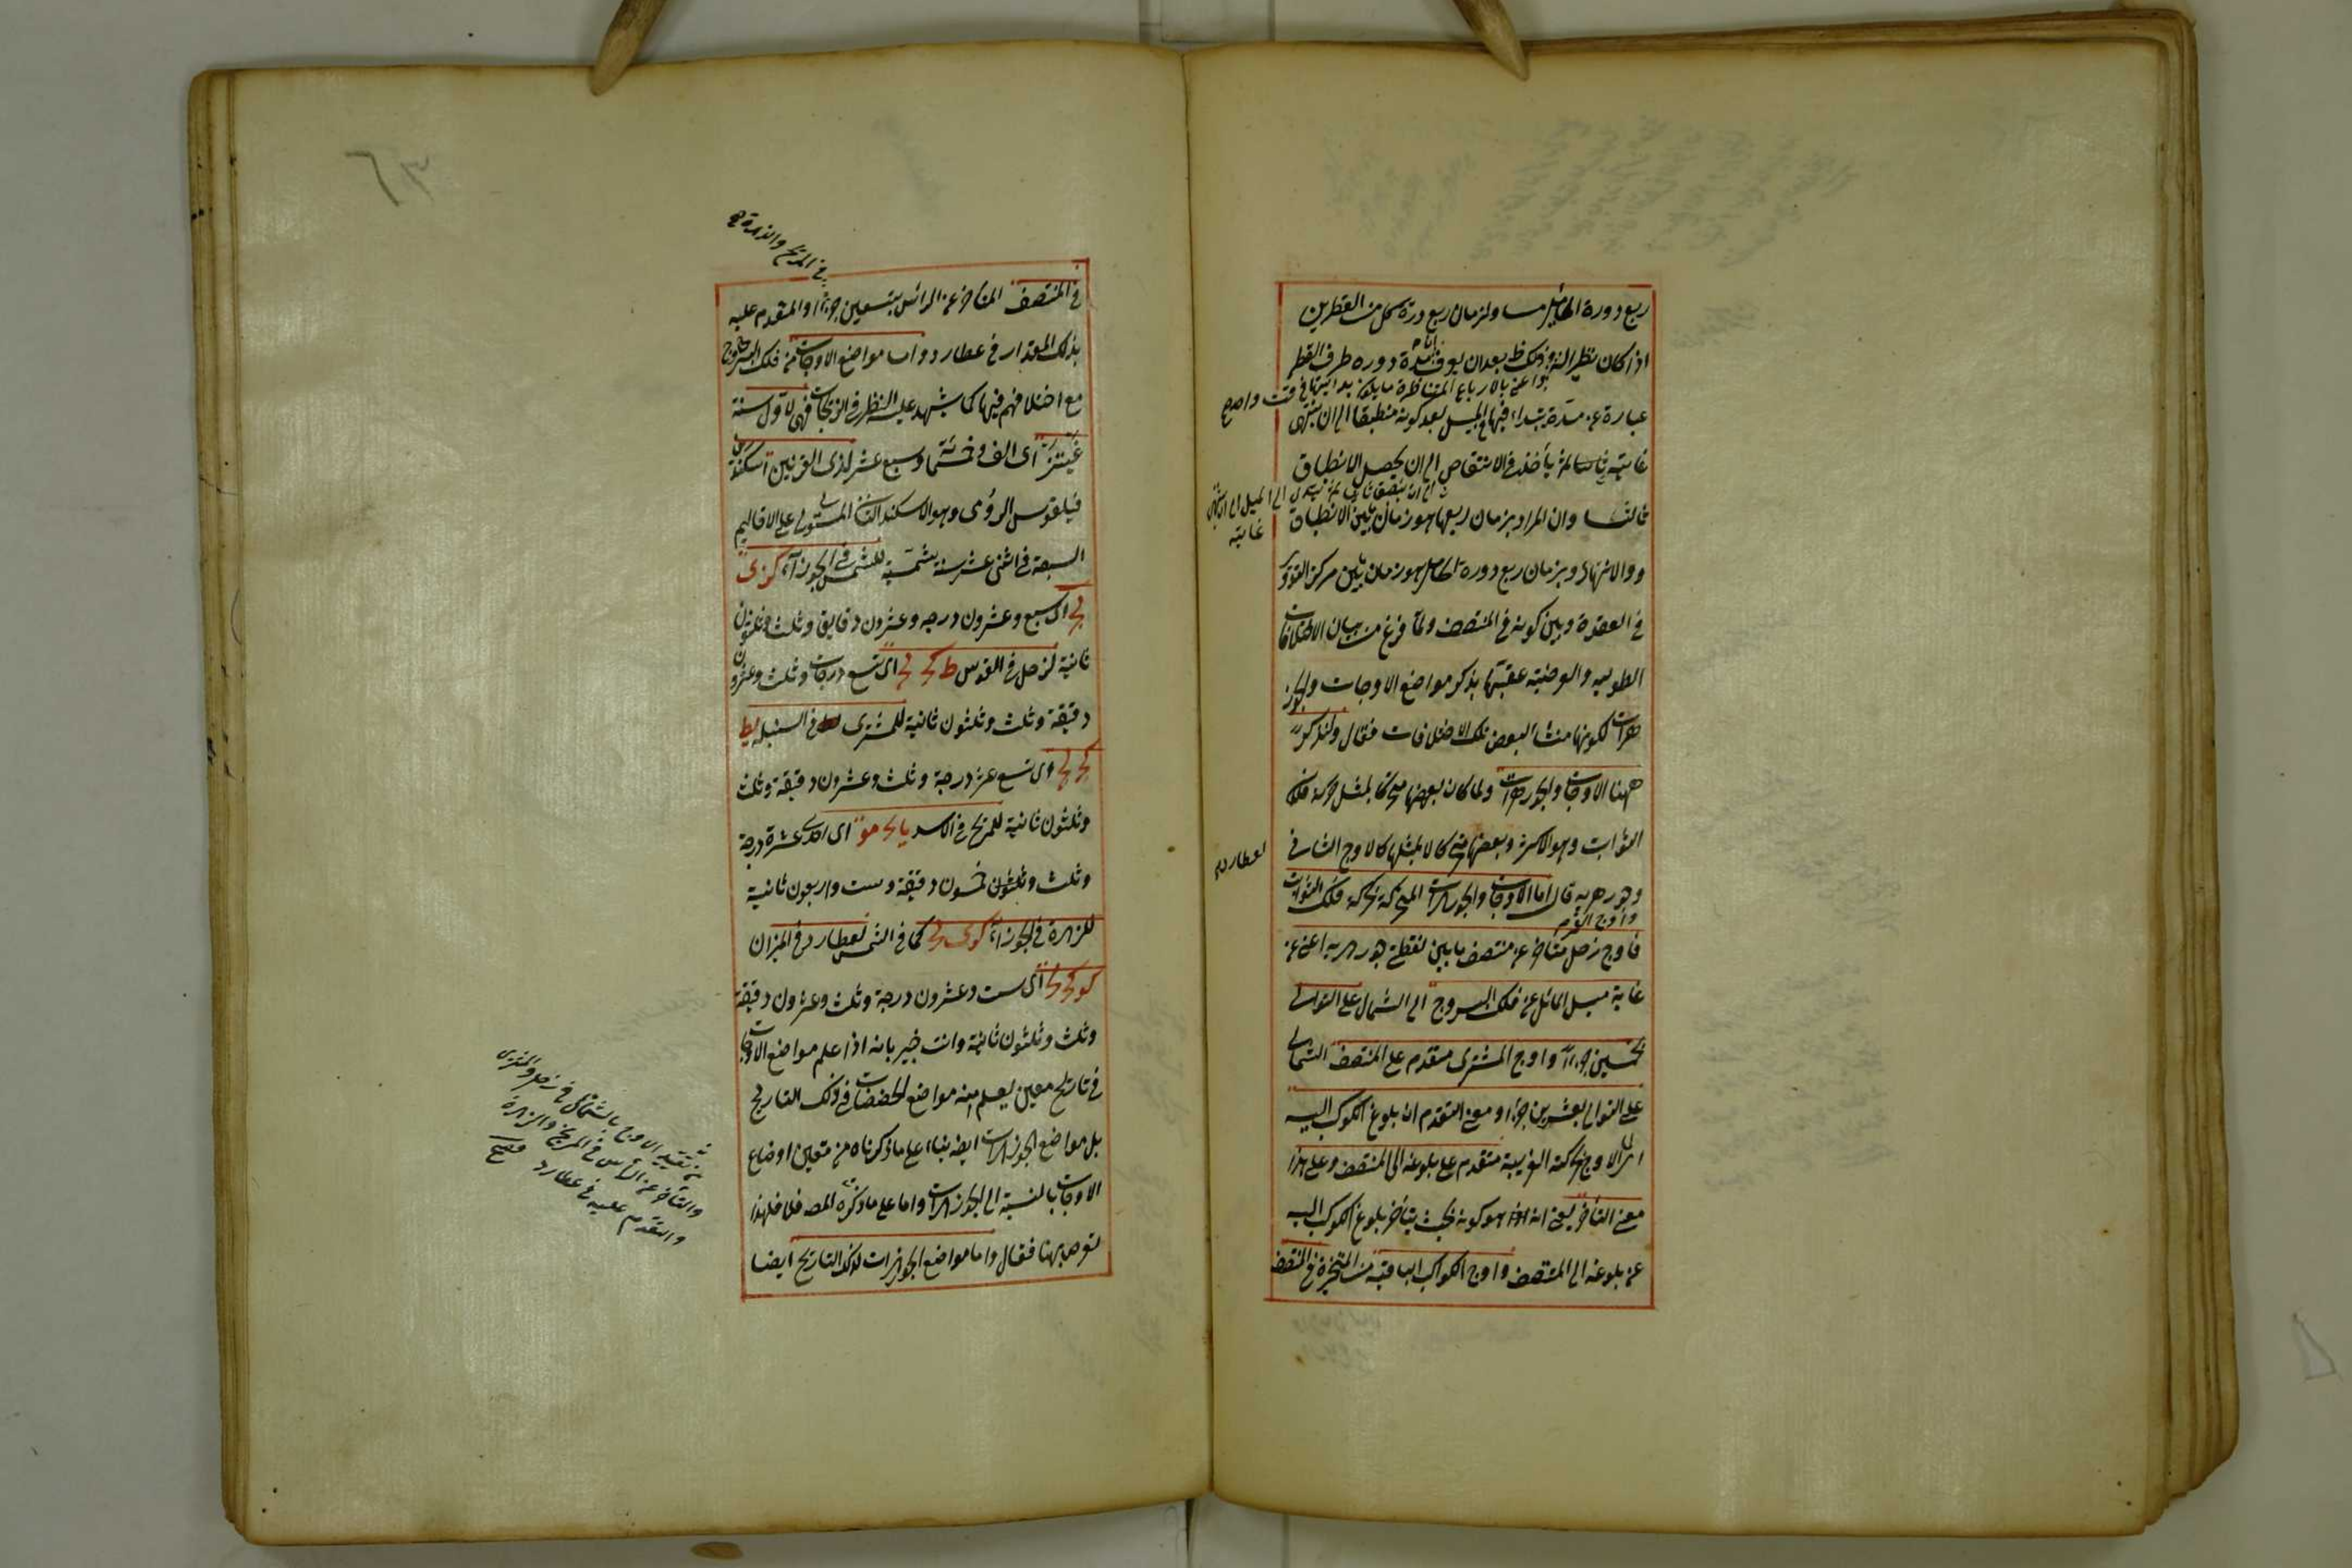 ربع دورة الحامل مساو لزمان ربع دورة كل من القطرين
اذا كان نظير الذروة وذلك ظ بعد ان يعرف ان مدة دوره طرف القطر
عبارة عن مدة يبتداء فيها الميل بعد كونه منطبقا الى ان ينتهى
غايته ثم يأخذ فى الانتقاص الى ان يحصل الانطباق
ثالثا وان المراد بزمان ربعها هو زمان بين الانطباق
والانتهاء وبزمان ربع دورة الحامل هو زمان بين مركز التدوير
فى العقدة وبين كونه فى المنتصف ولما فرغ من بيان الاختلافات
الطولية والعرضية عقبها بذكر مواضع الاوجات والجوز
هرات لكونها منشأ لبعض تلك الاختلافات فقال ولنذكر
ههنا الاوجات والجوزهرات ولما كان بعضها متحركا بمثل حركة فلك
الثوابت وهو الاكثر وبعضها متحركا لا بمثلها كالاوج الثانى
لعطارد
وجوزهريه قال اما الاوجات والجوزهرات المتحركة بحركة فلك الثوابت
فاوج زحل متأخر عن منتصف ما بين نقطتى جوزهريه اعنى عن
غاية ميل المائل عن فلك البروج الى الشمال على التوالى
بخمسين جزءا واوج المشترى متقدم على المنتصف الشمالى
على التوالى بعشرين جزءا ومعنى التقدم ان بلوغ الكوكب اليه
اى الى الاوج بحركته الغربية متقدم على بلوغه الى المنتصف وعلى هذا
معنى التأخر يعنى انه هو كونه بحيث يتأخر بلوغ الكوكب اليه
عن بلوغه الى المنتصف واوج الكواكب الباقية من المتحيرة فى المنتصف
فى المريخ والزهرة صح
فى المنتصف المتأخر عن الرأس بتسعين جزءا او المتقدم عليه
بذلك المقدار فى عطارد واما مواضع الاوجات من فلك البروج
مع اختلافهم فيها كما يشهد عليه النظر فى الزيجات فهى لاول سنة
اى الف وخمسمائة وسبع عشر لذى القرنين اسكندر بن
فيلقوس الرومى وهو الاسكندر الثانى المستولى على الاقاليم
السبعة فى اثنى عشر سنة شمسية للشمس فى الجوزاء كز ى
لج اى سبع وعشرون درجه وعشرون دقايق وثلث وثلثون
ثانية لزحل فى القوس ط كج لج اى تسع درجات وثلث وعشرون
دقيقة وثلث وثلثون ثانية للمشترى فى السنبله يط
كج لج اى تسع عشر درجة وثلث وعشرون دقيقة وثلث
وثلثون ثانية للمريخ فى الاسد يا نج مو اى احدى عشرة درجة
وثلث وخمسون دقيقة وست واربعون ثانية
للزهرة فى الجوزاء كز ى لج كما فى الشمس لعطارد فى الميزان
كو كج لج اى ست وعشرون درجة وثلث وعشرون دقيقة
وثلث وثلثون ثانية وانت خبير بانه اذا علم مواضع الاوجات
فى تاريخ معين يعلم منه مواضع الحضيضات فى ذلك التاريخ
بل مواضع الجوزهرات ايضا بناء على ما ذكرناه من تعين اوضاع
الاوجات بالنسبة الى الجوزهرات واما على ما ذكره المصـ فلا فلهذا
تعرض بها فقال واما مواضع الجوزهرات لذلك التاريخ ايضا
تقييد الاوج بالشمالى فى زحل والمشترى
والتأخر عن الرأس فى المريخ والزهرة
والتقدم عليه فى عطارد